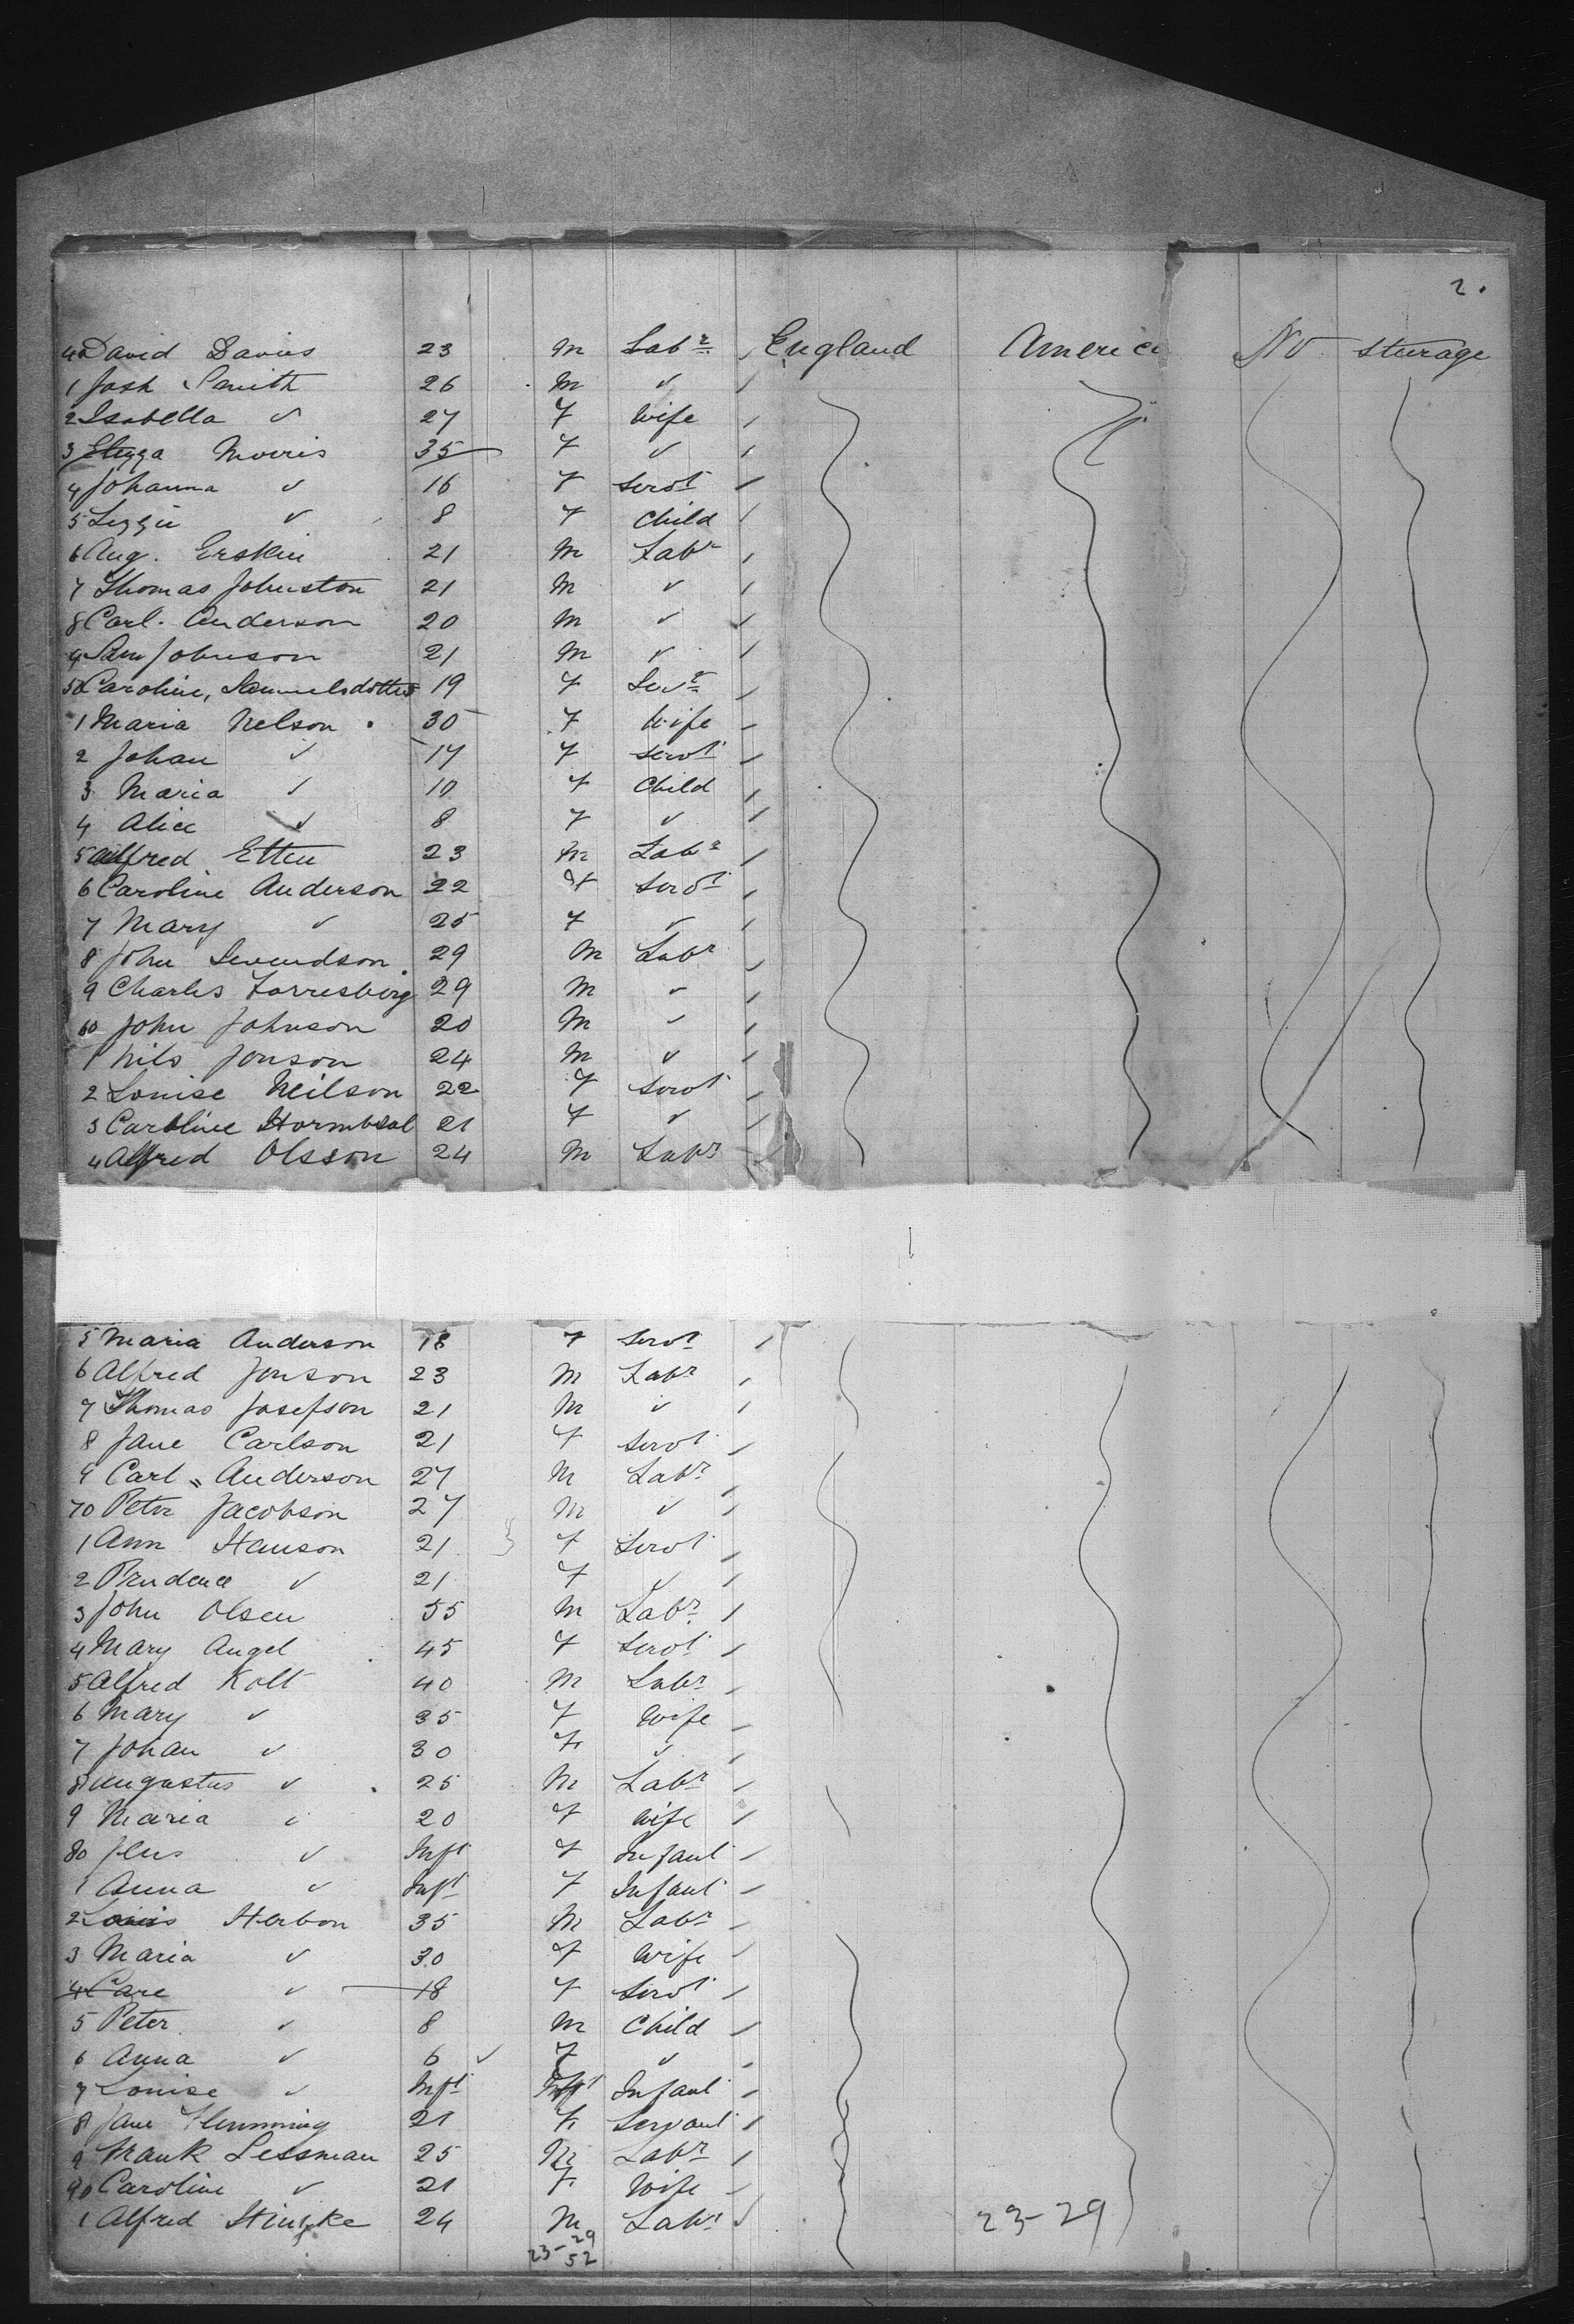 2.
40 David Davies 23 M Labr England America No sturage
1 Josh Smith 26 M ✓
2 Isabella ✓ 27 F Wife
3 Morris 35 F ✓
4 Johanna ✓ 16 F Servt
5 Lizzie ✓ 8 F Child
6 Aug. Erskin 21 M Labr
7 Thomas Johnston 21 M ✓
8 Carl. Anderson 20 M ✓
9 Sam Johnson 21 M ✓
50 Caroline, Samuelsdotter 19 F Servt
1 Maria Nelson 30 F Wife
2 Johan ✓ 17 F Servt
3 Maria ✓ 10 F Child
4 Alice ✓ 8 F ✓
5 Alfred Etten 23 M Labr
6 Caroline Anderson 22 F Servt
7 Mary ✓ 25 F ✓
8 John 29 M Labr
9 Charles 29 M ✓
60 John Johnson 20 M ✓
1 Nils Jonson 24 M ✓
2 Louise Neilson 22 F Servt
3 Caroline 21 F ✓
4 Alfred Olsson 24 M Labr
5 Maria Anderson 18 F Servt
6 Alfred Jonson 23 M Labr
7 Thomas Josefson 21 M ✓
8 Jane Carlson 21 F Servt
9 Carl " Anderson 27 M Labr
70 Peter Jacobson 27 M ✓
1 Ann Hanson 21 F Servt
2 Prudence ✓ 21 F ✓
3 John Olsen 55 M Labr
4 Mary Angel 45 F Servt
5 Alfred Kolt 40 M Labr
6 Mary ✓ 35 F Wife
7 Johan ✓ 30 F ✓
8 Augustus ✓ 25 M Labr
9 Maria ✓ 20 F Wife
80 Jens ✓ Inft F Infant
1 Anna ✓ Inft F Infant
2 Louis Herbon 35 M Labr
3 Maria ✓ 30 F Wife
4 ✓ 18 F Servt
5 Peter ✓ 8 M Child
6 Anna ✓ 6 ✓ F ✓
7 Louise ✓ Inft Infant
8 Jane Flemming 21 F Servant
9 Frank Lessman 25 M Labr
90 Caroline ✓ 21 F Wife
1 Alfred 24 M Labr 23-29
23-29
52